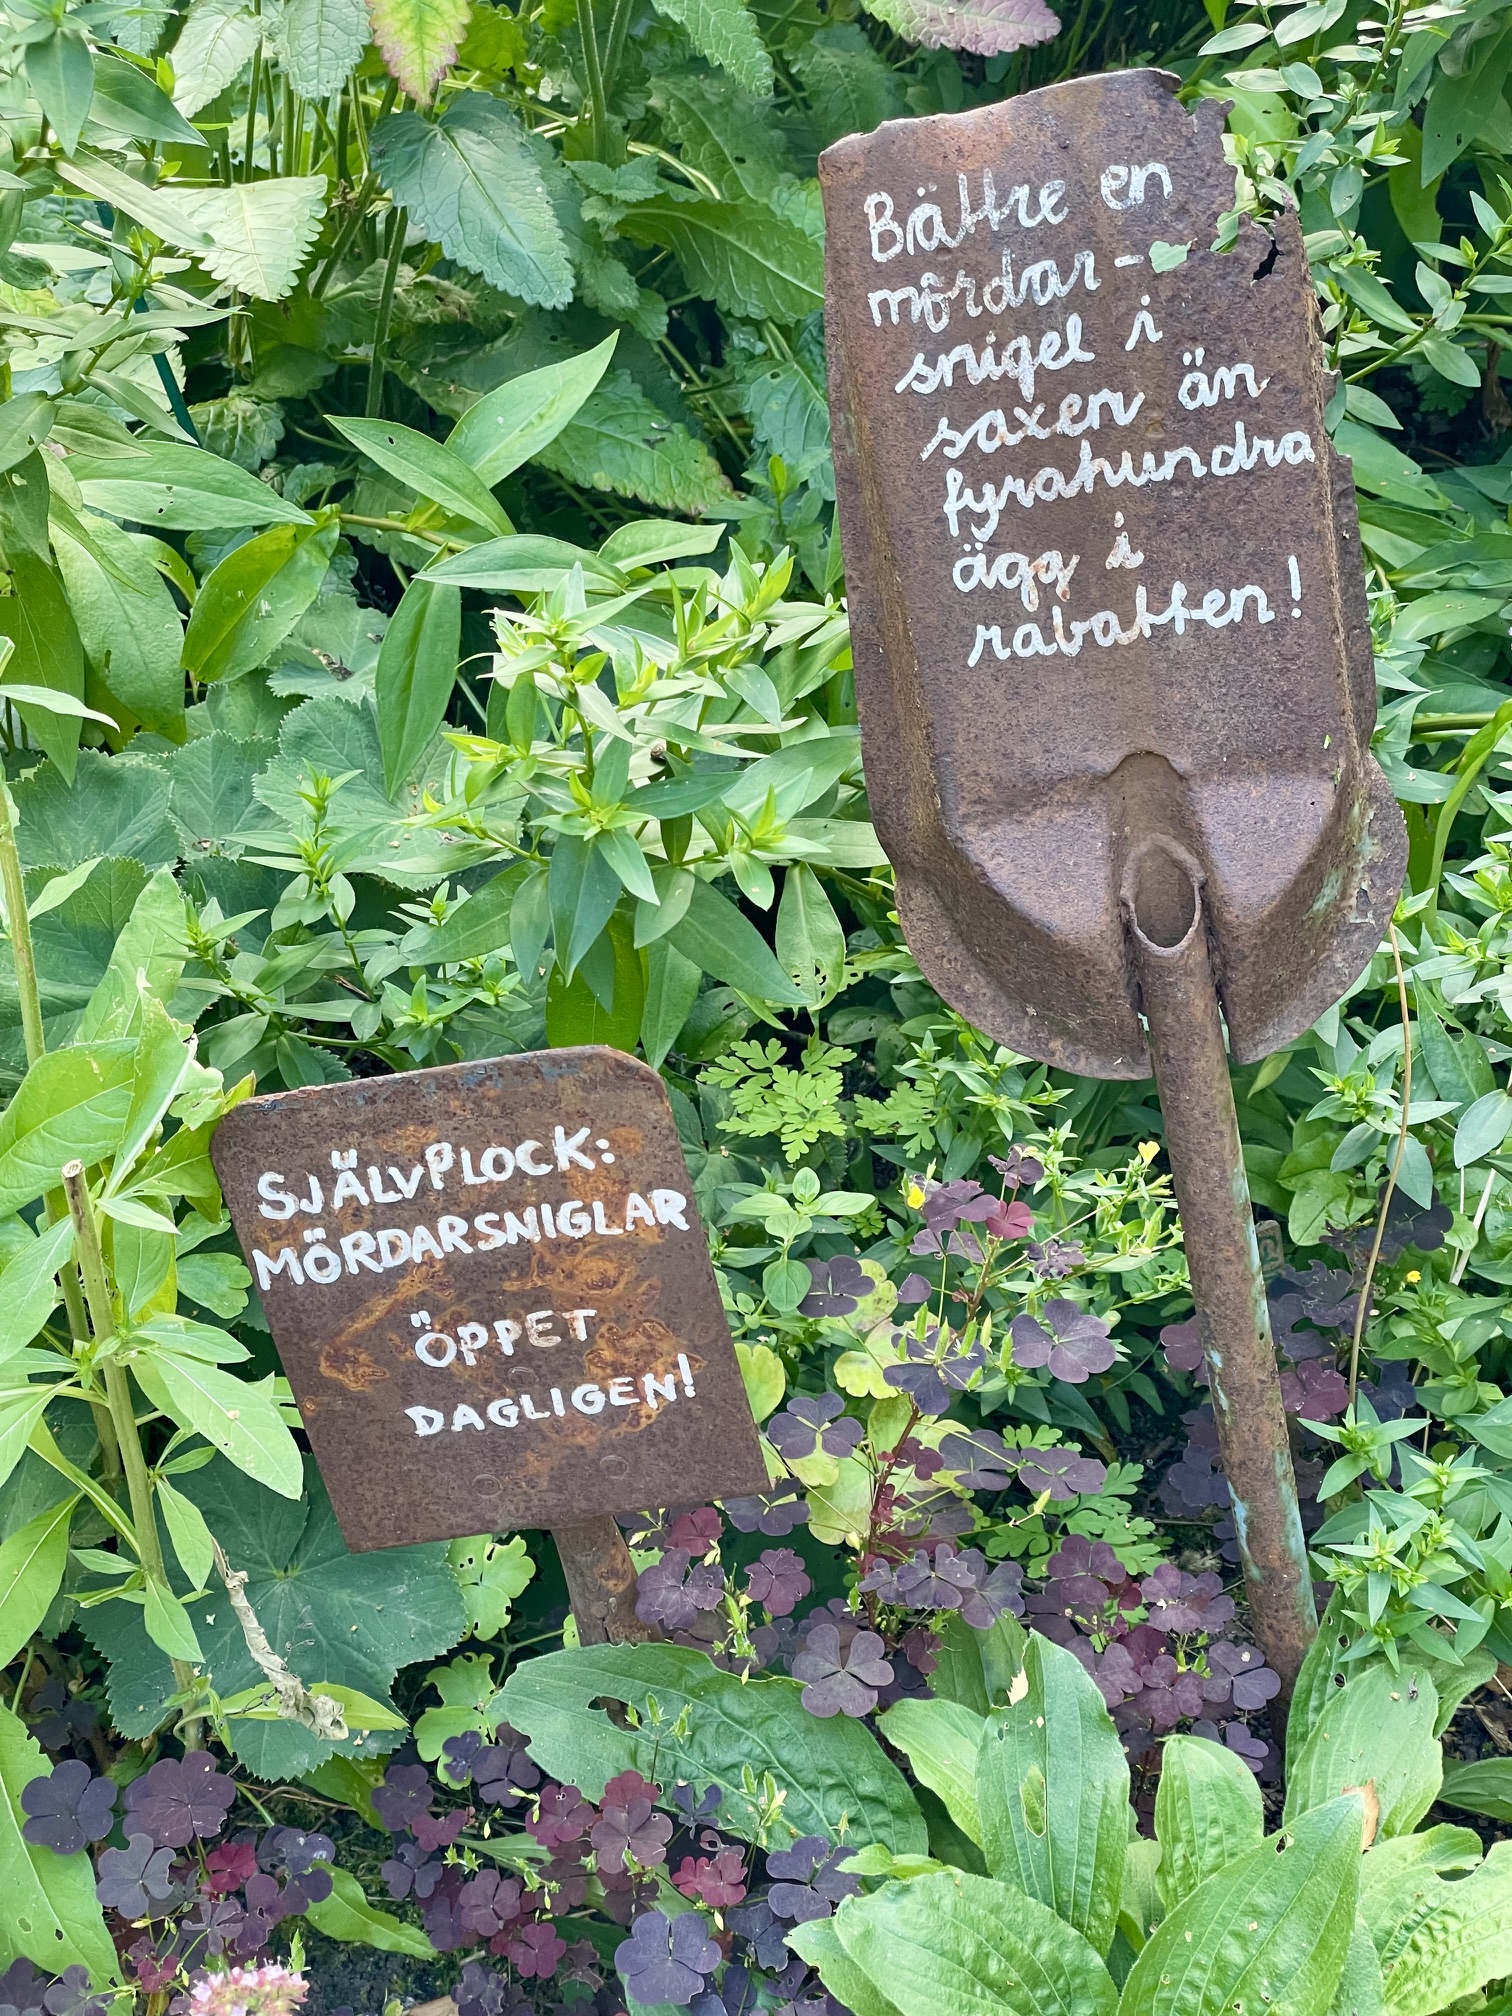 Brättre en
mördar-
snigel i
saxen än
fyrahundra
ägg i
rabatten!
SJÄLVPLOCK:
MÖRDARSNIGLAR
ÖPPET
DAGLIGEN!